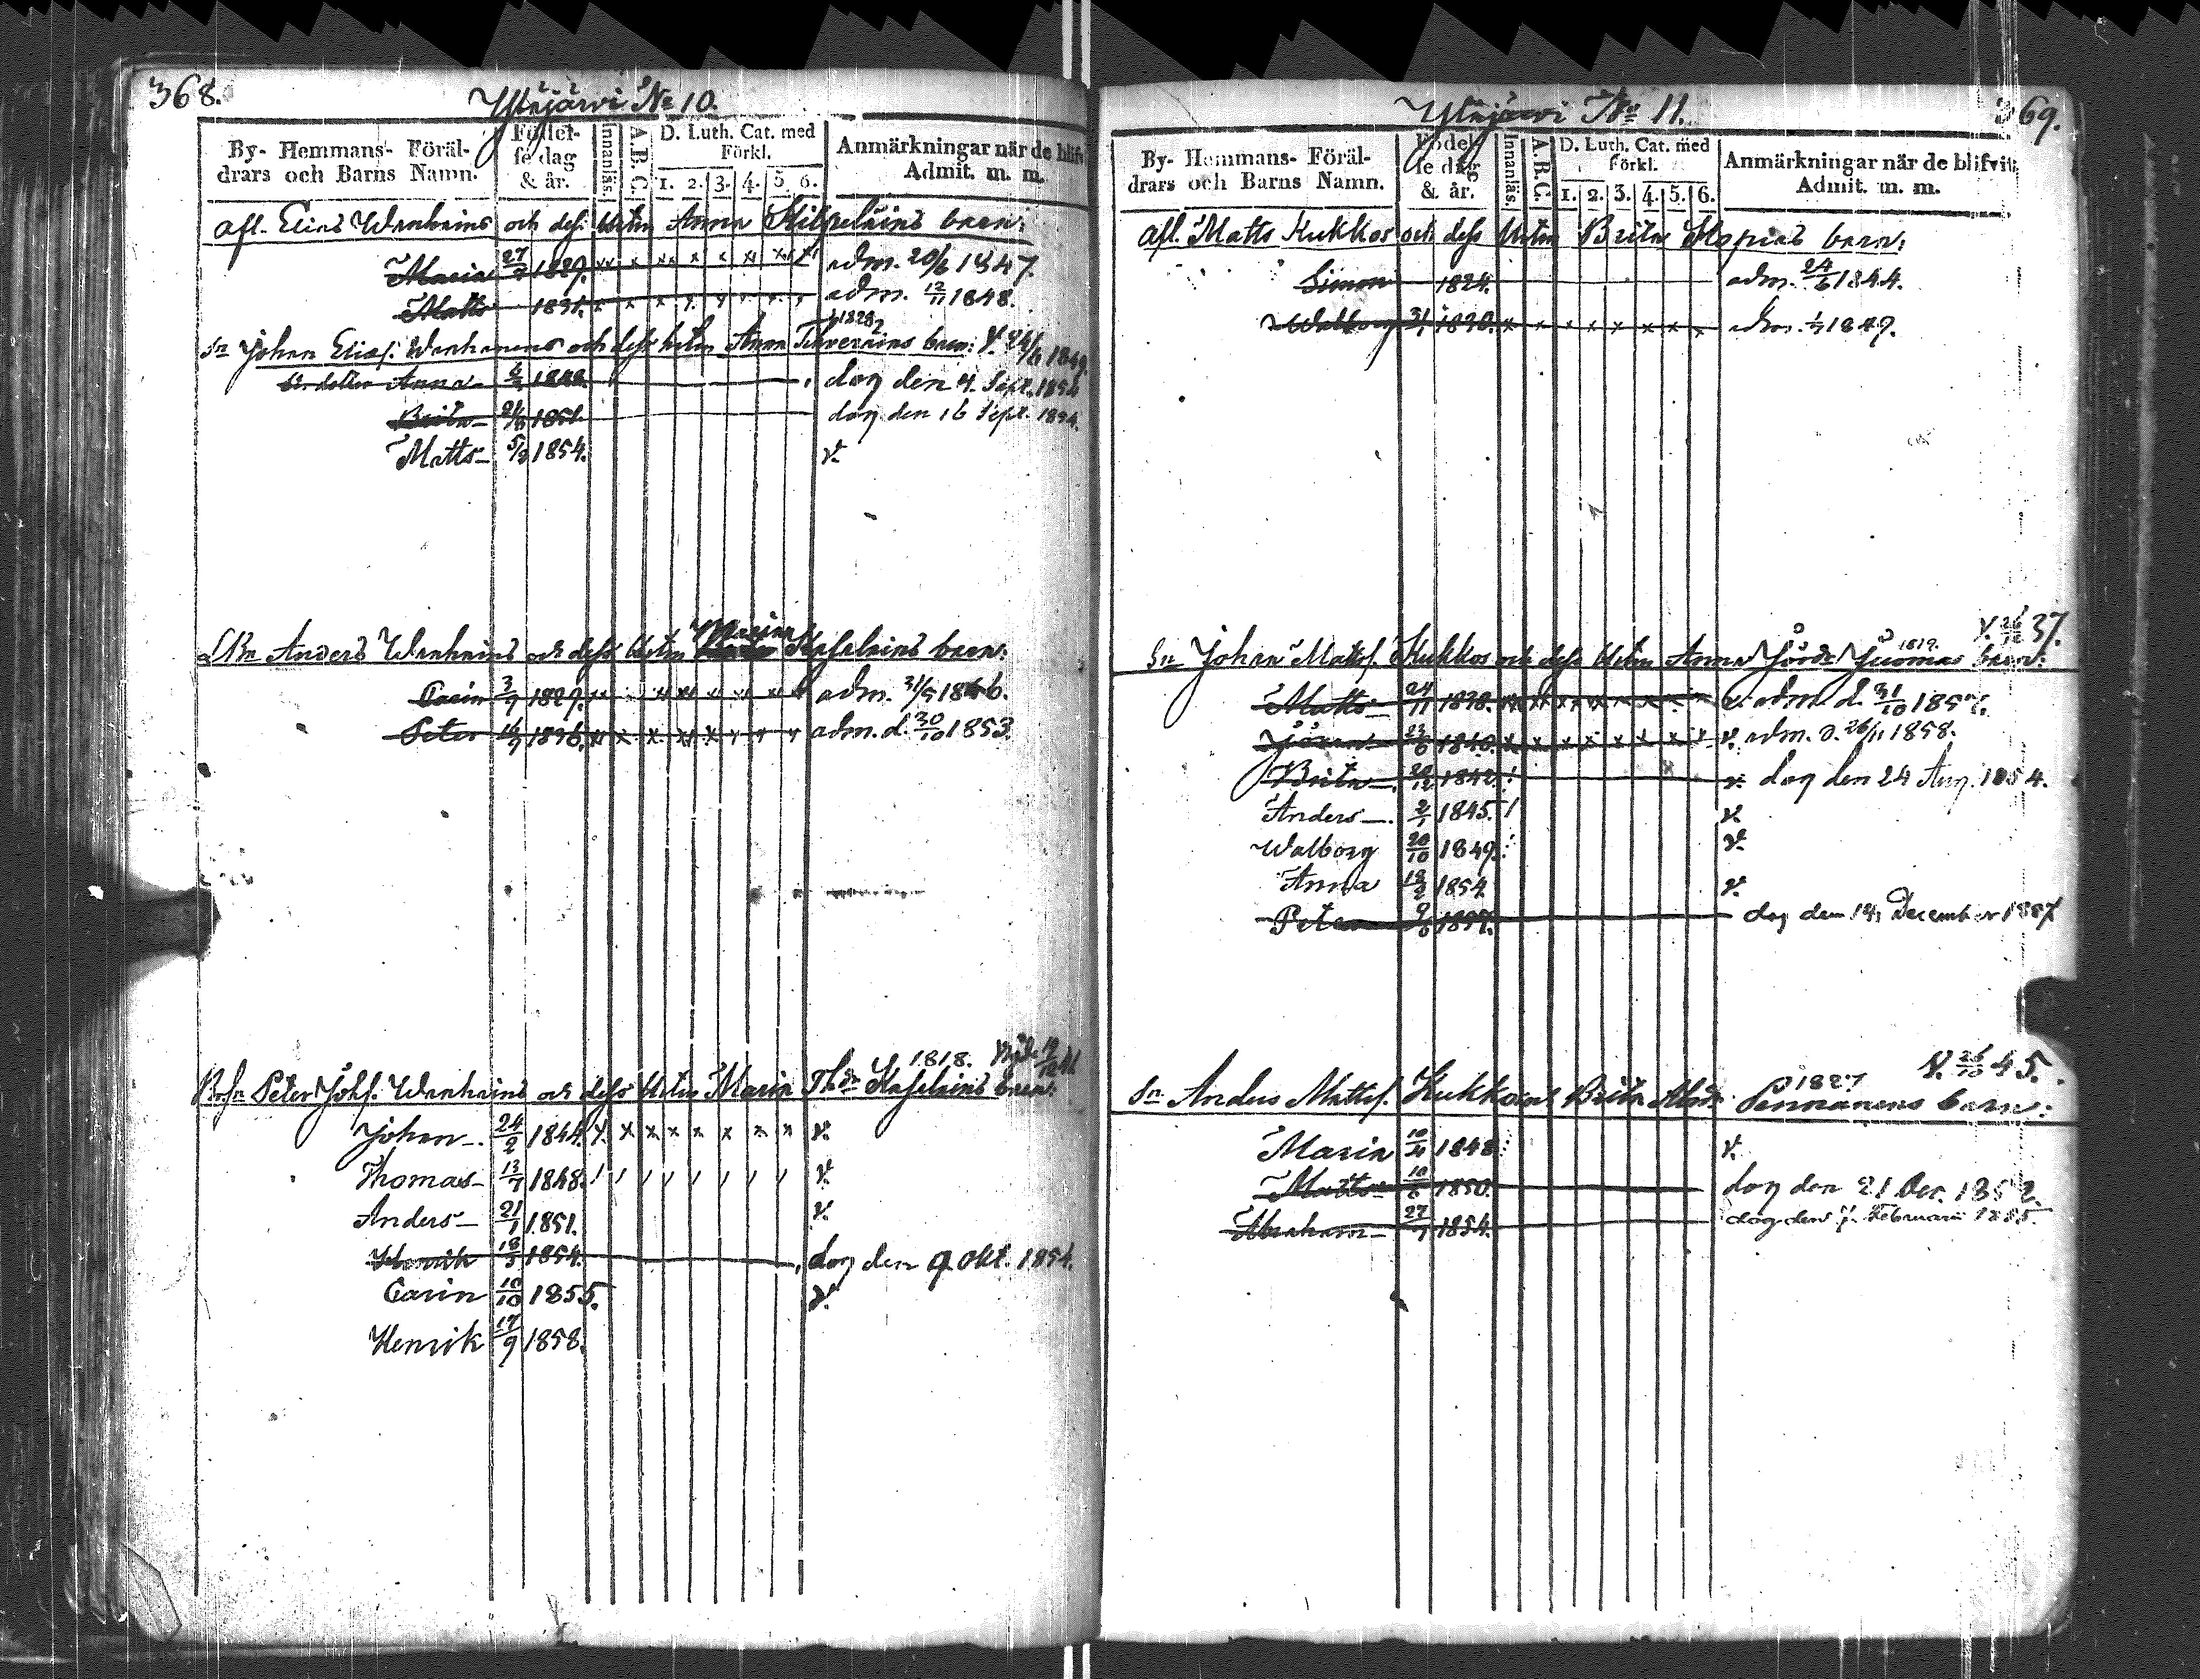 368.
Ylijärvi No 10.
By- Hemmans- Föräl-
drars och Barns Namn.
Födel-
se dag
& år.
Innanläs.
A.B.C.
D. Luth. Cat. med
Förkl.
1. 2. 3. 4. 5. 6.
Anmärkningar när de blifv
Admit. m. m.
afl. Elias Wanhains och dess Hstru Anna Kilpeläins barn:
Maria 27 1827. adm. 20/6 1847.
Matts 1831. adm. 12/11 1848.
1828
Sn Johan Elias. Wanhanens och dess hstru Anna barn: V. 1849
Anna dog den 4. Sept. 1854
Brita 1851 dog den 16 Sept. 1854.
Matts 5/2 1854. v.
Anders Wanhains och dess Hstru Maria barn:
Carin 3/9 1829. adm. 31/5 1846.
Peter 1836. adm. d. 30/10 1853.
1818.
Peter Johs. Wanhains och dess Hstru Maria Thdr barn:
Johan 24/2 1844. v.
Thomas 13/7 1848. v.
Anders 21/1 1851. v.
Henrik 18/3 1854. dog den 9 Okt. 1854.
Carin 10/10 1855. v.
Henrik 17/9 1858.
369.
Ylijärvi No 11.
By- Hemmans- Föräl-
drars och Barns Namn.
Födel-
se dag
& år.
Innanläs.
A.B.C.
D. Luth. Cat. med
Förkl.
1. 2. 3. 4. 5. 6.
Anmärkningar när de blifvit
Admit. m. m.
afl. Matts Kukkos och dess Hstru Brita barn:
Simon 1824. adm. 24/6 1844.
Walborg 1830. 1849.
V. 37.
1819.
Sn Johan Matts. Kukkos och dess Hstru Anna barn:
Matts 24/11 1838. v. adm. d. 31/10
1840. v. adm. d. 26/11 1858.
Brita 20/12 1842. v. dog den 24 Aug. 1854.
Anders 2/1 1845. v.
Walborg 20/10 1849. v.
Anna 1854 v.
Peter 1857. dog den December 1857
V. 26/10 45.
1827
Sn Anders Matts. Brita Pennanens barn:
Maria 1848 v.
Matts 1850. dog den 21 Dec. 1852.
Abraham 27 1854. dog den Februarii 1855.